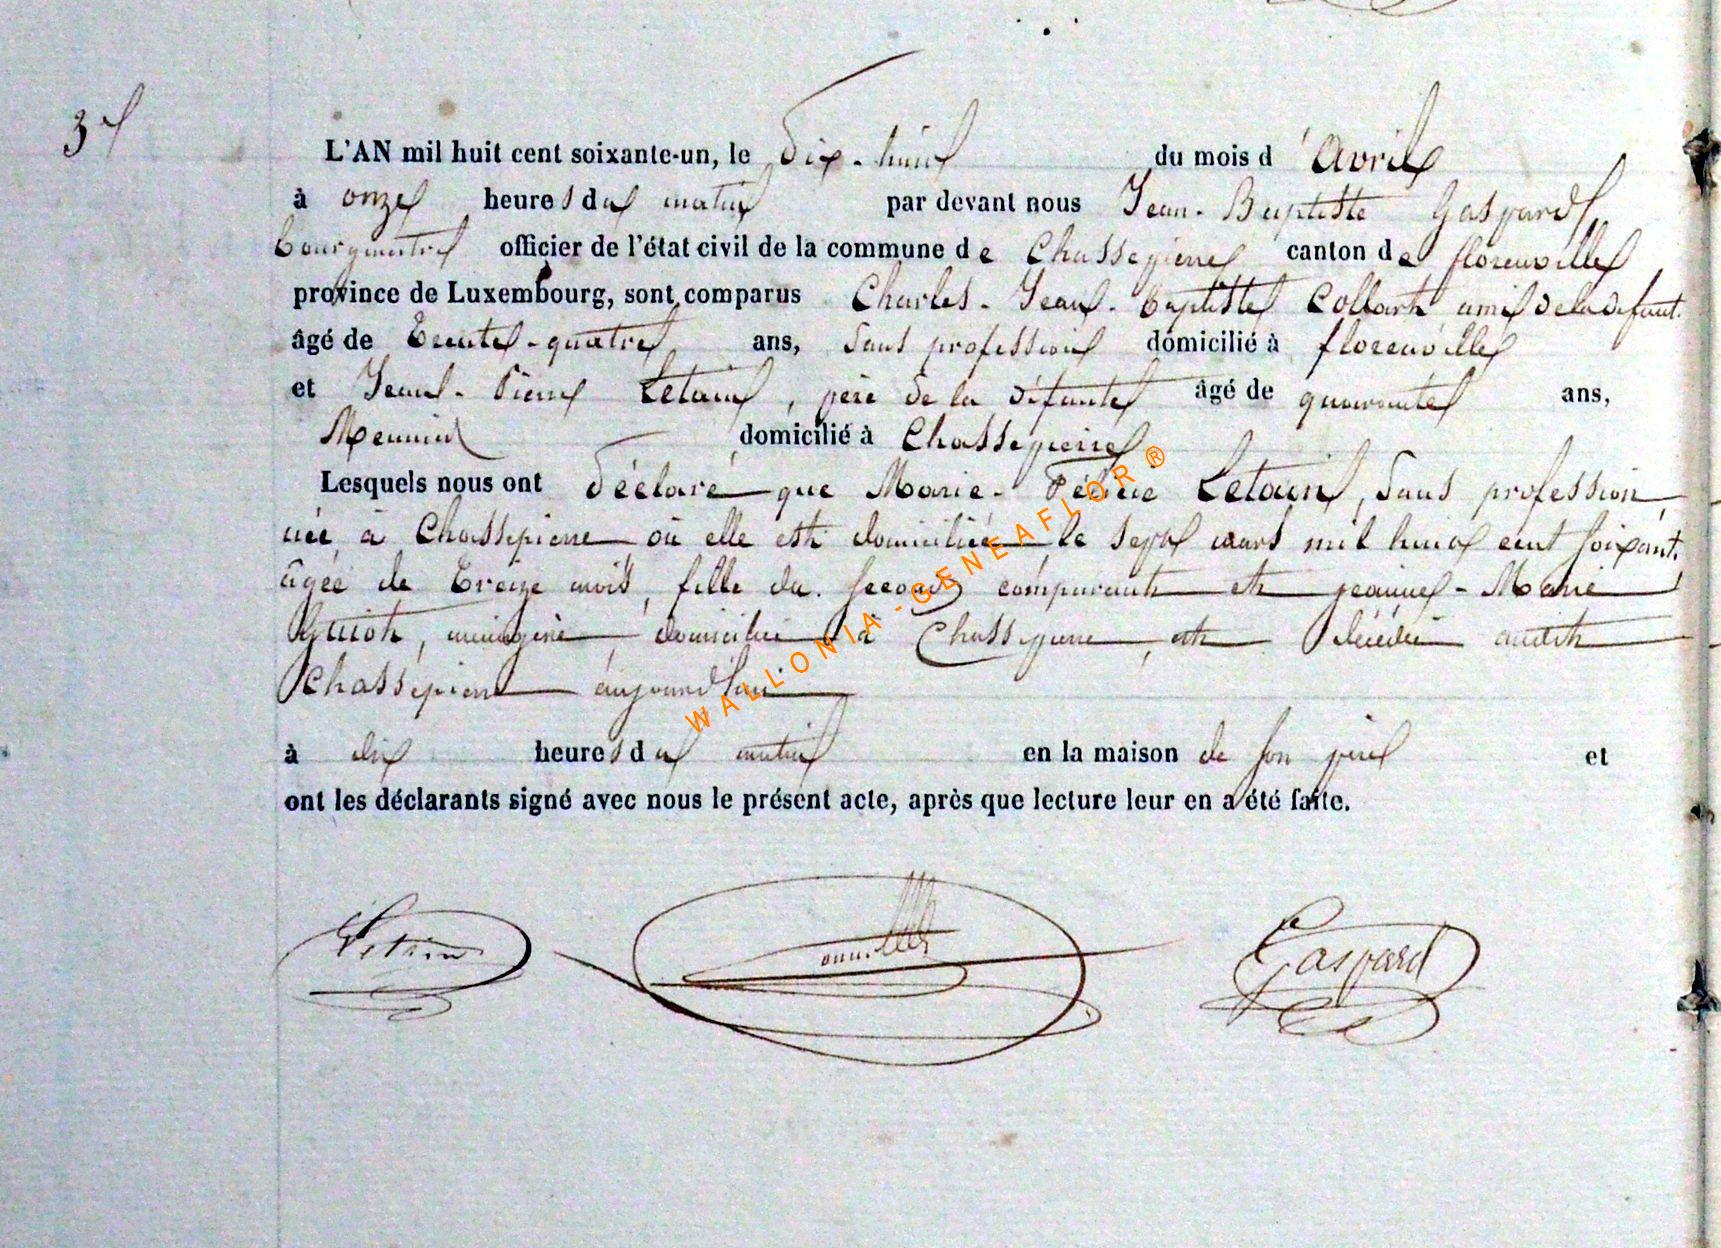 3
L'AN mil huit cent soixante-un, le dix-huit du mois d'avril
à onze heures du matin par devant nous Jean-Baptiste Gaspard,
bourgmestre officier de l'état civil de la commune de Chassepierre canton de florenville
province de Luxembourg, sont comparus Charles-Jean-Baptiste Collart ami de la défunte
âgé de trente-quatre ans, sans profession domicilié à florenville
et Jean-Pierre Letain, père de la défunte âgé de quarante ans,
Meunier domicilié à Chassepierre
Lesquels nous ont déclaré que Marie- Letain, sans profession,
née à Chassepierre où elle est domiciliée le sept mars mil huit cent soixante,
âgée de treize mois, fille du second comparant et jeanne-Marie
Guiot, ménagère, domiciliée à Chassepierre, est décédée audit
Chassepierre aujourd'hui
à dix heures du matin en la maison de son père et
ont les déclarants signé avec nous le présent acte, après que lecture leur en a été faite.
Gaspard
WALLONIA-GENEAFLOR®